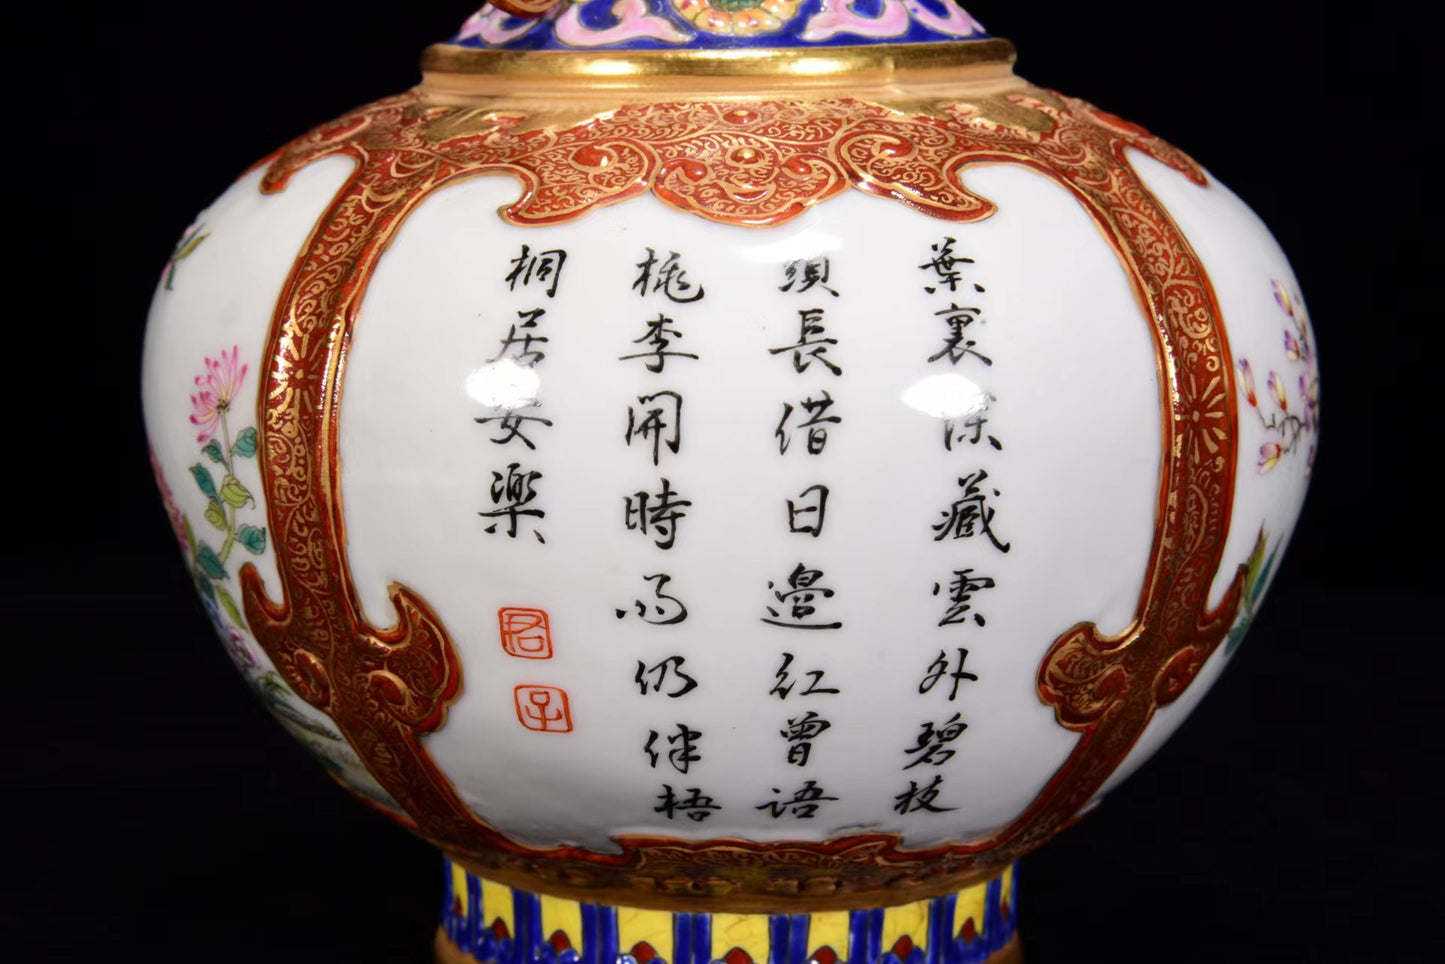 葉裏深藏雲外碧枝
頭長借日邊紅曾語
桃李開時雨仍伴梧
桐居安樂
君
子